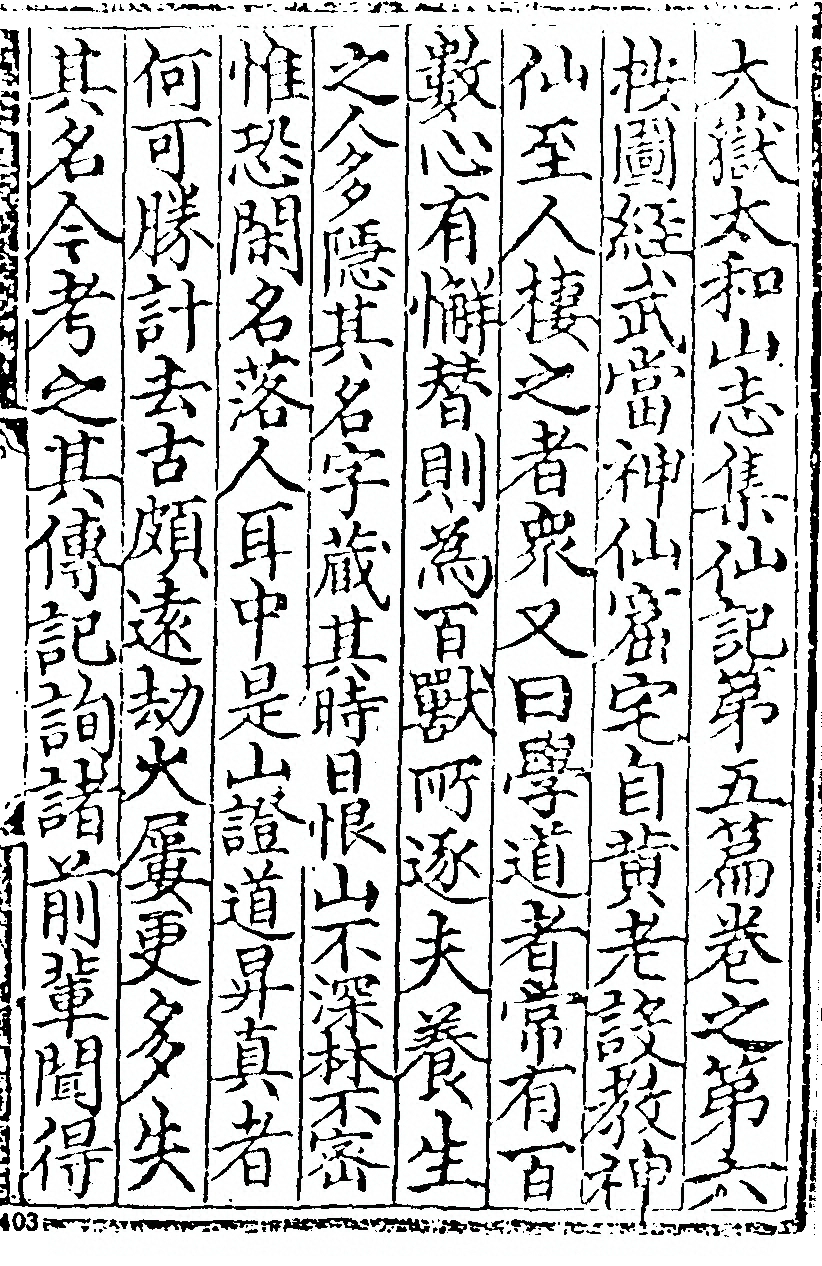 大嶽太和山志集仙記第五篇卷之第六
按圖經武當神仙窟宅自黃老設教神
仙至人棲之者衆又曰學道者常有百
數心有懈替則為百獸所逐夫養生
之人多隱其名字藏其時日恨山不深林不密
惟恐閑名落人耳中是山證道昇真者
何可勝計去古頗遠劫火屢更多失
其名今考之其傳記詢諸前輩聞得
403